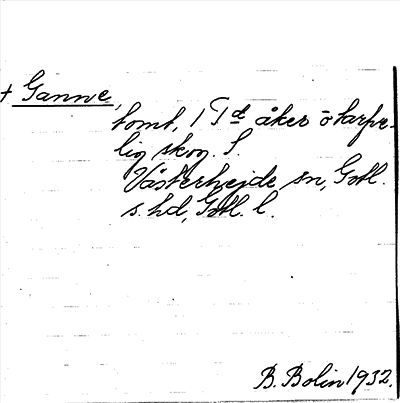 + Ganne,
tomt, 1 T:d åker o karpe-
lig skog. S.
Västerhejde sn, Gotl.
s. hd, Gotl. l.
B. Bolin 1932.